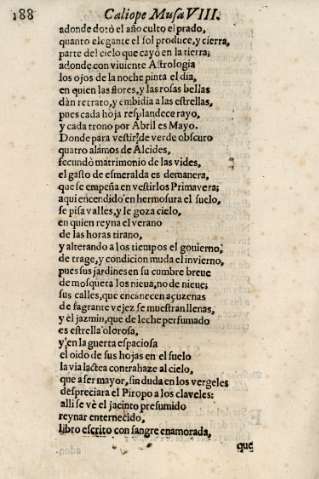 188 Caliope Musa VIII.
adonde dotò el año culto el prado,
quanto elegante el sol produce, y cierra,
parte del cielo que cayò en la tierra;
adonde con viuiente Astrologia
los ojos de la noche pinta el dia,
en quien las flores, y las rosas bellas
dàn retrato, y embidia a las estrellas,
pues cada hoja resplandece rayo,
y cada trono por Abril es Mayo.
Donde para vestirse de verde obscuro
quatro alamos de Alcides,
fecundò matrimonio de las vides,
el gasto de esmeralda es de manera,
que se empeña en vestirlos Primavera;
aqui encendido en hermosura el suelo,
se pisa valles, y le goza cielo,
en quien reyna el verano
de las horas tirano,
y alterando a los tiempos el gouierno,
de trage, y condicion muda el inuierno,
pues sus jardines en su cumbre breue
de mosqueta los nieua, no de nieue;
sus calles, que encanecen açuzenas
de fragante vejez se muestran llenas,
y el jazmin, que de leche perfumado
es estrella olorosa,
y en la guerta espaciosa
el oido de sus hojas en el suelo
la via lactea contrahaze al cielo,
que a ser mayor, sin duda en los vergeles
despreciara el Piropo a los claueles:
alli se vè el jacinto presumido
reynar enternecido,
libro escrito con sangre enamorada,
que